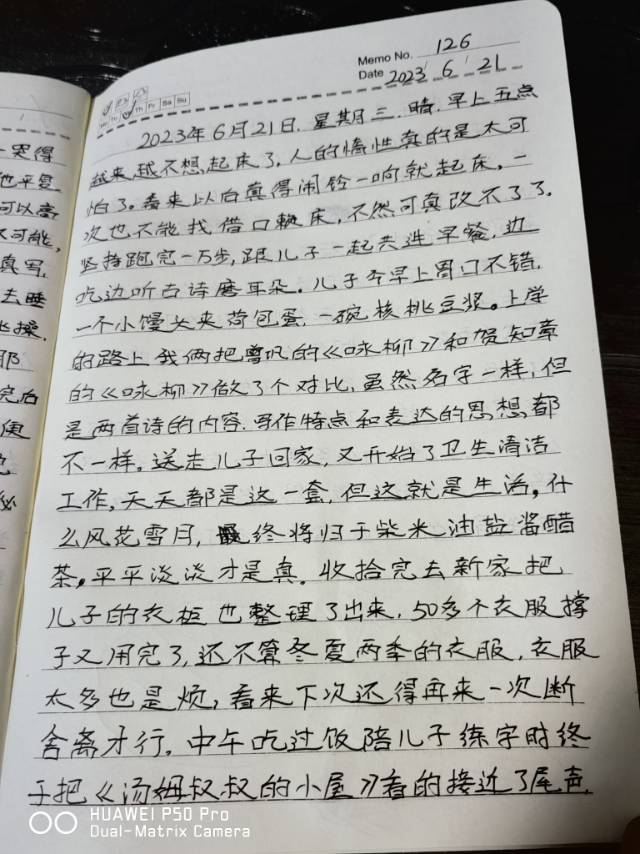 Memo No. 126
Date 2023 6 21
Mo Tu We Th Fr Sa Su
2023年6月21日.星期三.晴.早上五点
越来越不想起床了,人的惰性真的是太可
怕了。看来以后真得闹铃一响就起床,一
次也不能找借口赖床,不然可真改不了了.
坚持跑完一万步,跟儿子一起共进早餐,边
吃边听古诗磨耳朵。儿子今早上胃口不错.
一个小馒头夹荷包蛋.一碗核桃豆浆。上学
的路上我俩把曾巩的《咏柳》和贺知章
的《咏柳》做了个对比,虽然名字一样,但
是两首诗的内容.写作特点和表达的思想都
不一样。送走儿子回家,又开始了卫生清洁
工作,天天都是这一套,但这就是生活。什
么风花雪月,最终将归于柴米油盐酱醋
茶。平平淡淡才是真.收拾完去新家把
儿子的衣柜也整理了出来,50多个衣服撑
子又用完了,还不算冬夏两季的衣服,衣服
太多也是烦,看来下次还得再来一次断
舍离才行。中午吃过饭陪儿子练字时终
于把《汤姆叔叔的小屋》看的接近了尾声.
哭得
他平复
可以高
不可能,
真写
去睡
操.
完后
便
必
HUAWEI P50 Pro
Dual-Matrix Camera